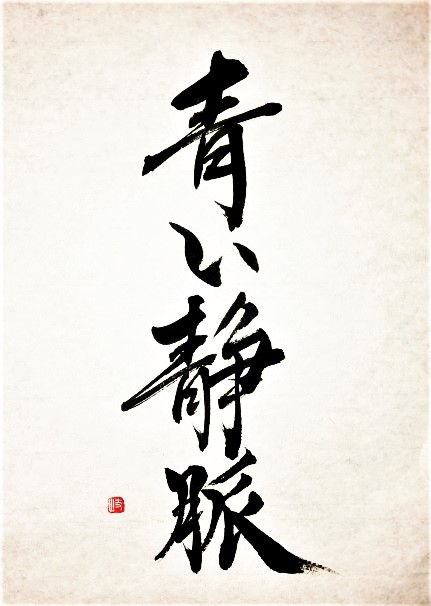 青い静脈